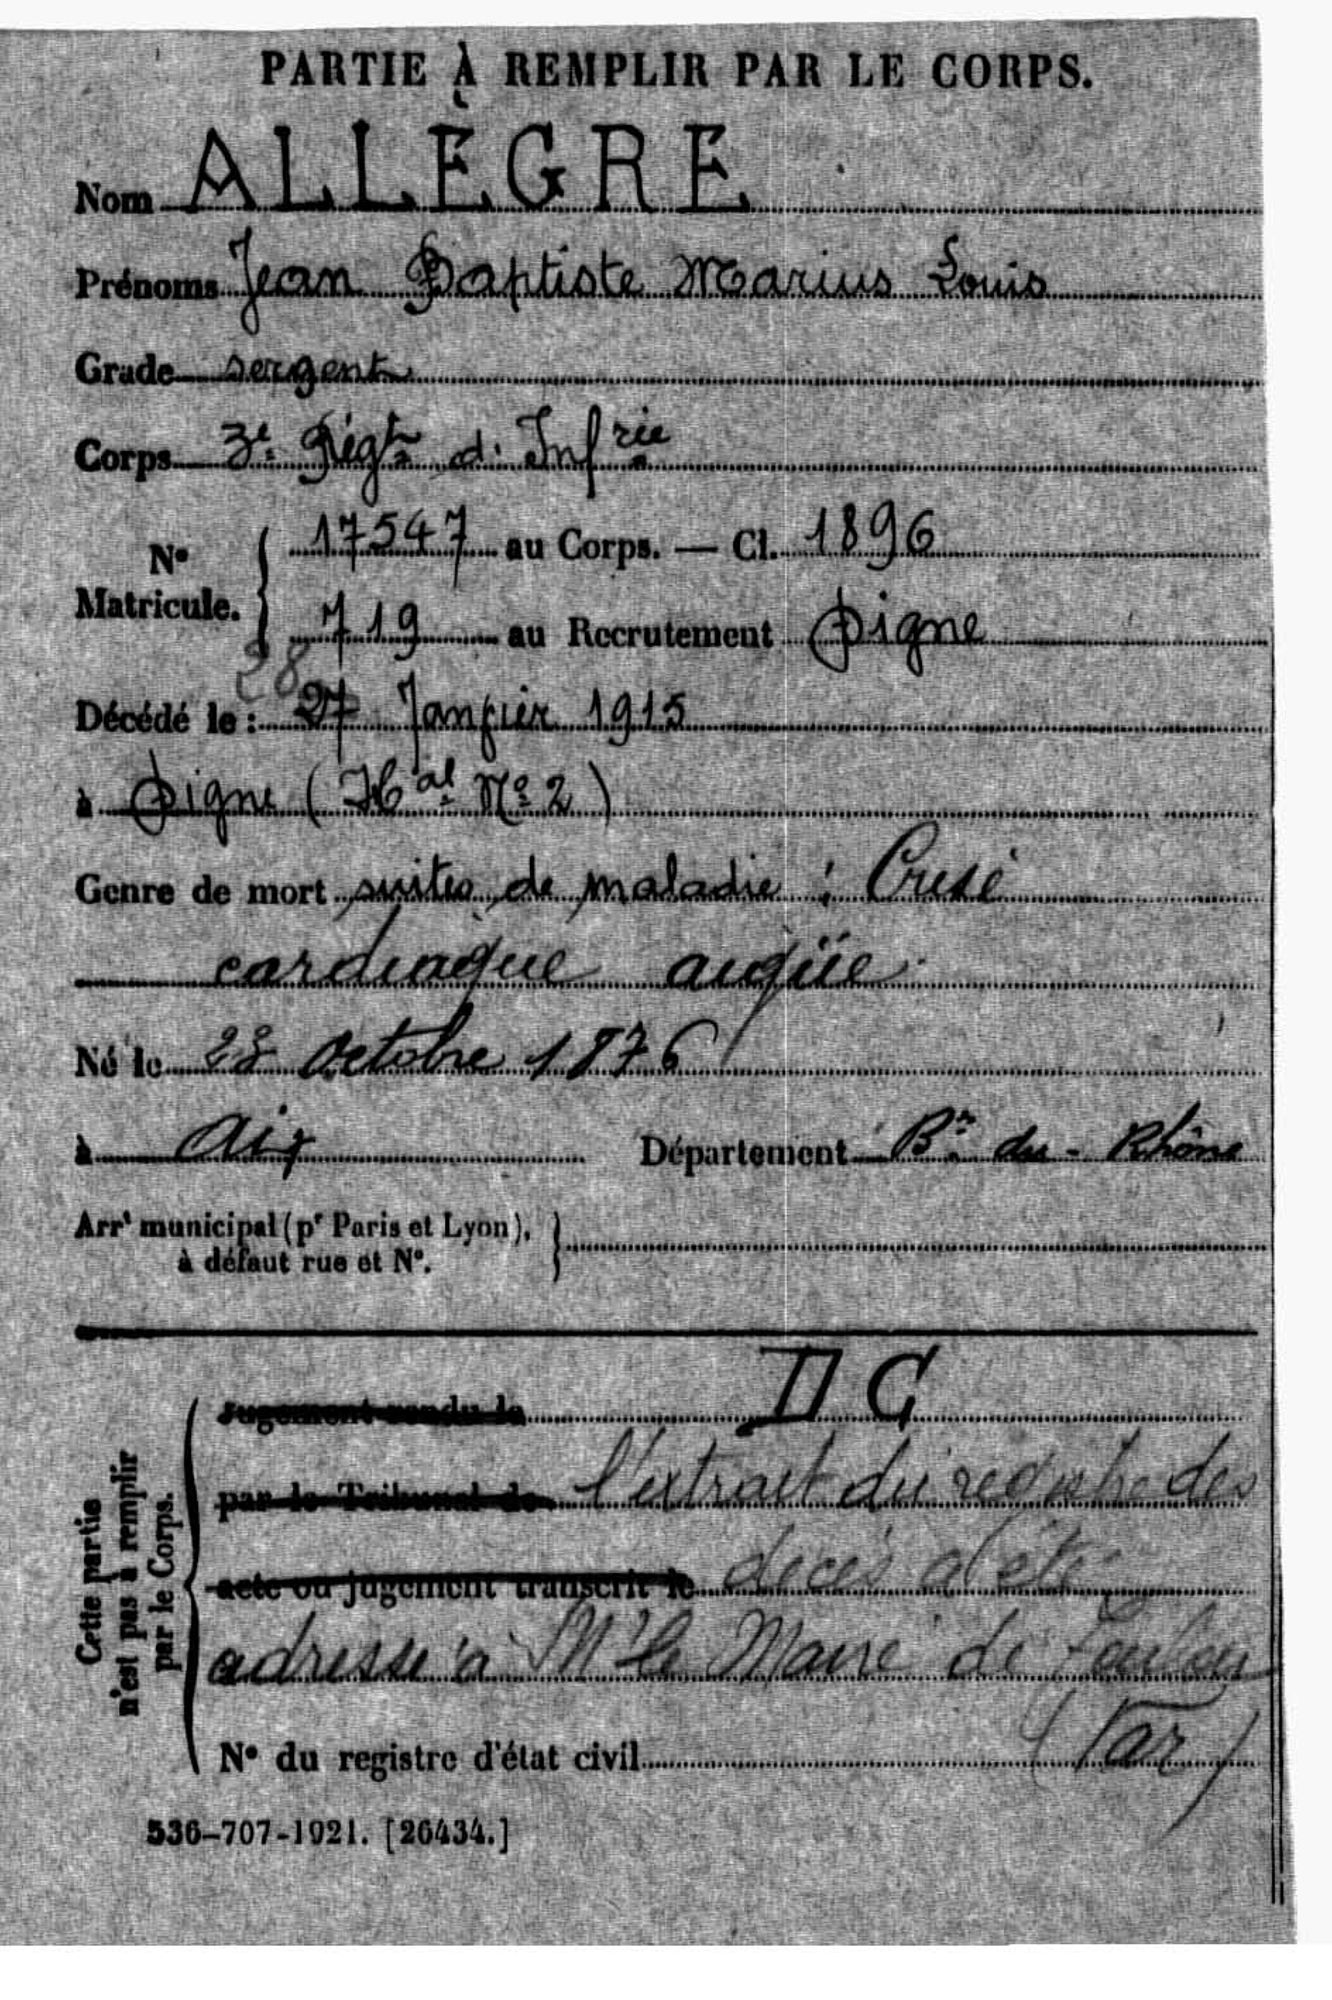 PARTIE À REMPLIR PAR LE CORPS.
Nom ALLÈGRE
Prénoms Jean Baptiste Marius Louis
Grade sergent
Corps 3e Régt d'Infrie
No Matricule. { 17547 au Corps. — Cl. 1896
719 au Recrutement Digne
28
Décédé le : 27 Janvier 1915
à Digne (Hal No 2)
Genre de mort suites de maladie : Crise
cardiaque aigüe.
Né le 28 Octobre 1876
à Aix Département Bes du - Rhône
Arrt municipal (pr Paris et Lyon), }
à défaut rue et No.
Cette partie
n'est pas à remplir
par le Corps.
Jugement rendu le DC
par le Tribunal de l'extrait du registre des
acte ou jugement transcrit le décès a été
adressé à Mr le Maire de Toulon
No du registre d'état civil (Var)
536-707-1921. [26434.]